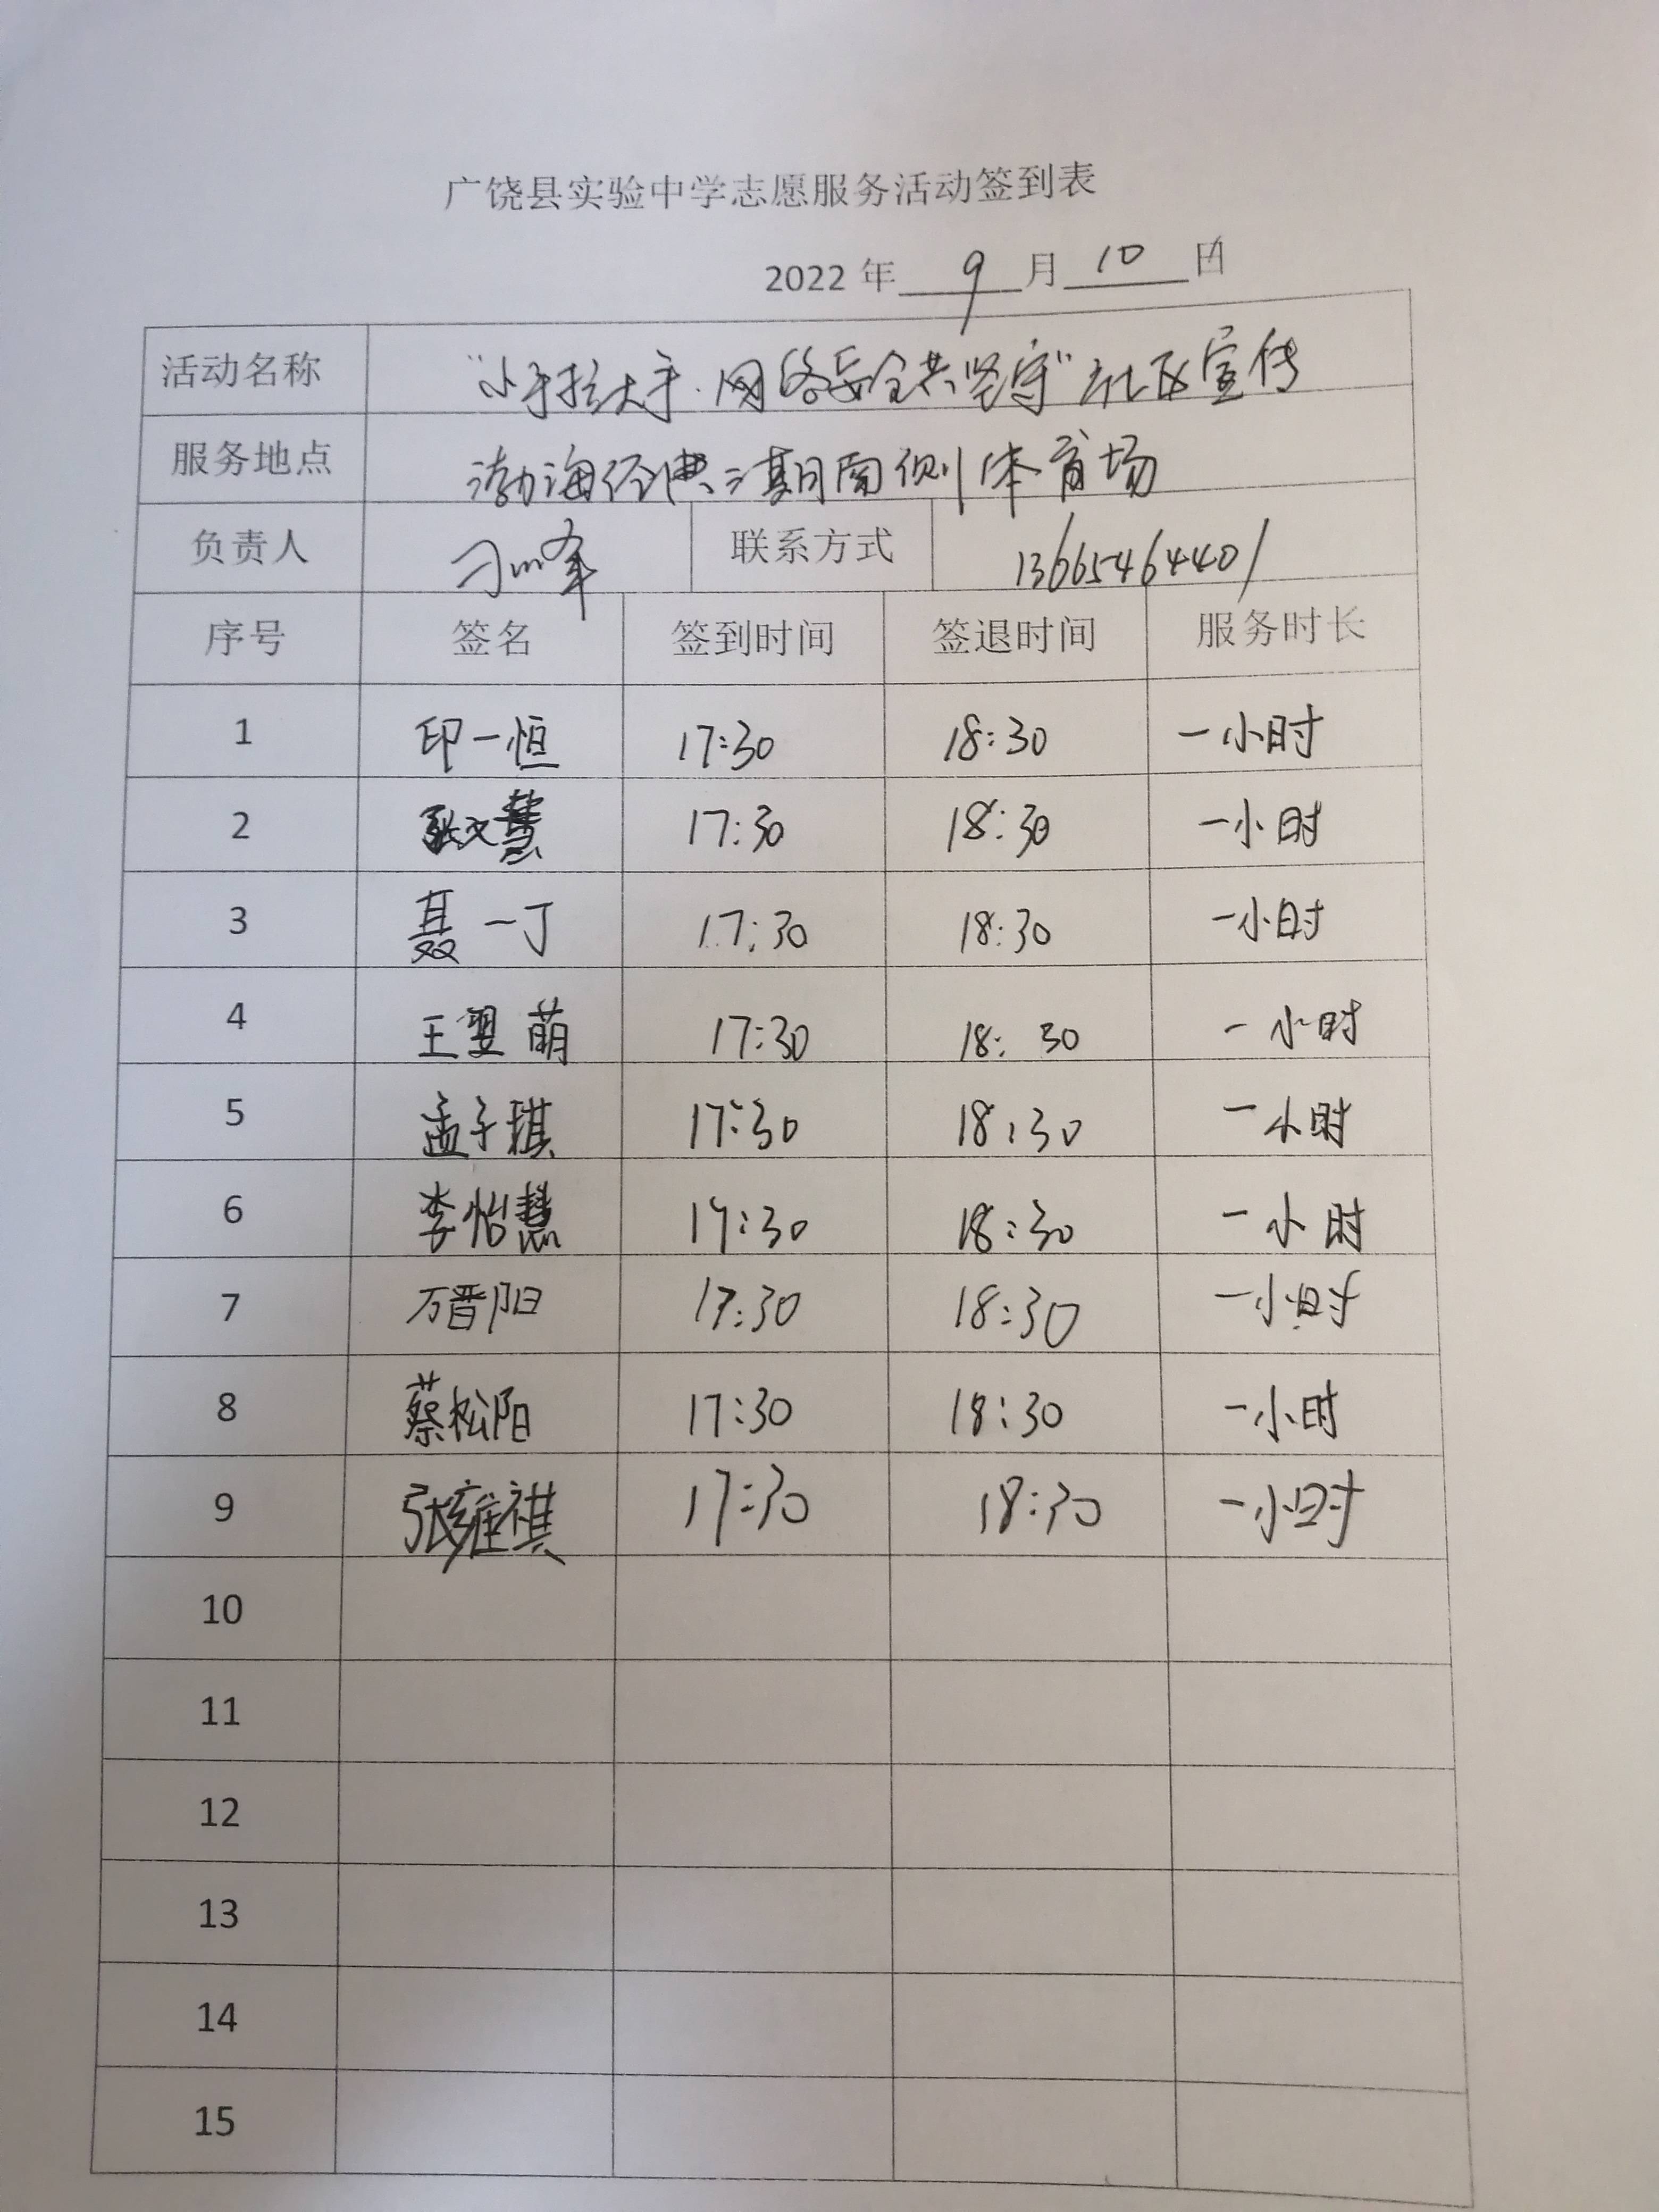 广饶县实验中学志愿服务活动签到表
2022 年 9 月 10 日
活动名称 “小手拉大手·网络安全共坚守”社区宣传
服务地点 渤海经典二期南侧体育场
负责人 刁峰 联系方式 13665464401
序号 签名 签到时间 签退时间 服务时长
1 印一恒 17:30 18:30 一小时
2 张文慧 17:30 18:30 一小时
3 聂一丁 17:30 18:30 一小时
4 王翌萌 17:30 18:30 一小时
5 孟子琪 17:30 18:30 一小时
6 李怡慧 17:30 18:30 一小时
7 万晋阳 17:30 18:30 一小时
8 蔡松阳 17:30 18:30 一小时
9 张雍祺 17:30 18:30 一小时
10
11
12
13
14
15